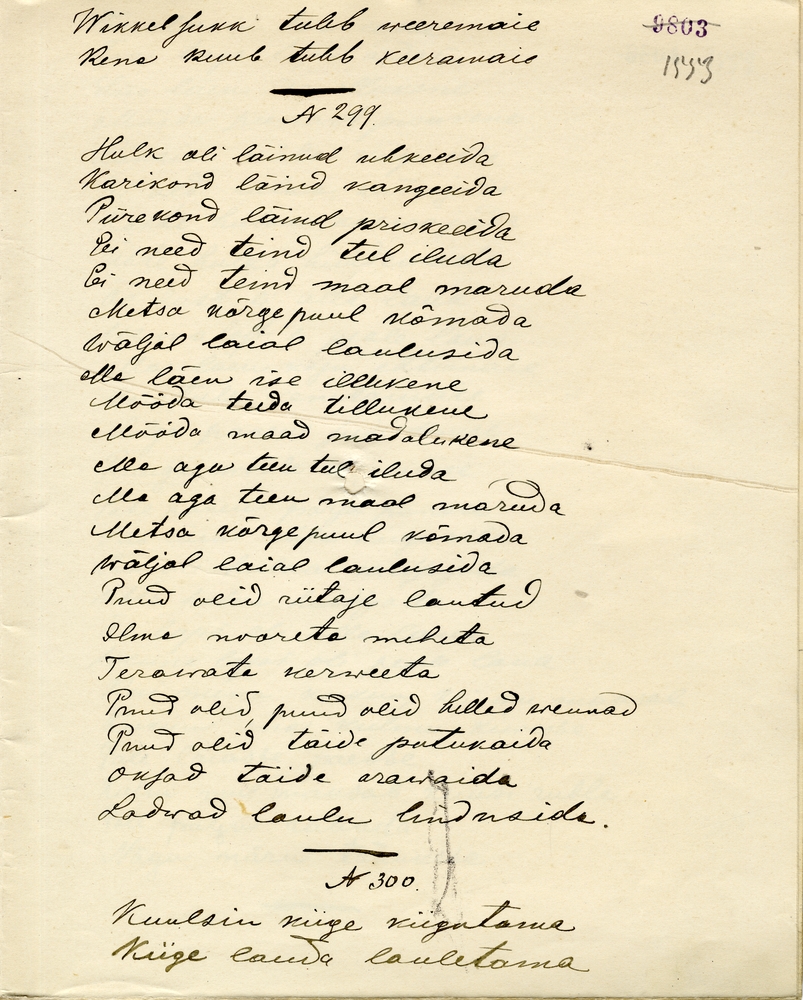 Wikkel sukk tuleb weeremaie
Rena kuub tuleb keeramaie
9803
1553
N 299.
Hulk oli läinud uhkeeida
Karikond läind kangeeida
Piirekond läind priskeeida
Ei need teind teel iluda
Ei need teind maal maruda
Metsa kõrge puul kõmada
Wäljal laial laulusida
Ma läen ise illukene
Mööda teeda tillukene
Mööda maad madalukene
Ma aga teen teel iluda
Ma aga teen maal maruda
Metsa kõrge puul kõmada
Wäljal laial laulusida
Puud olid riitaje lautud
Ilma nooreta meheta
Terawata kerweeta
Puud olid, puud olid hellad wennad
Puud olid täide putukaida
Oksad täide orawaida
Ladwad laulu lindusida.
N 300.
Kuulsin kiige kiigutama
Kiige lauda lauletama